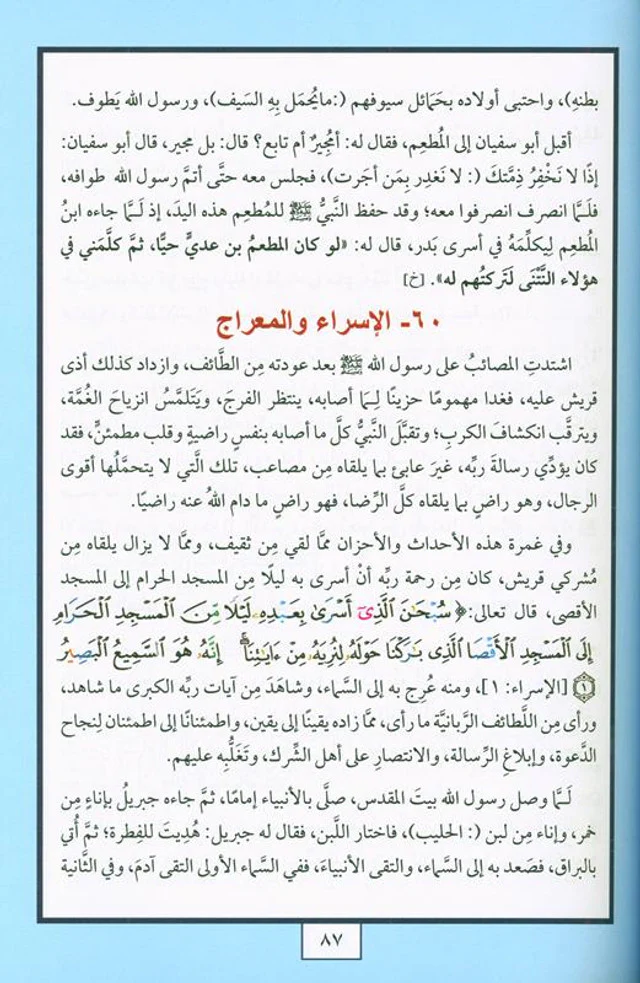 بطنهِ)، واحتبى أولاده بحَمَائل سيوفهم (:مايُحمَل بِهِ السَيف)، ورسول الله يَطوف.
أقبل أبو سفيان إلى المُطعِم، فقال له: أمُجيرٌ أم تابع؟ قال: بل مجير، قال أبو سفيان:
إذًا لا نَخْفِرُ ذِمَّتكَ (: لا نَغدِر بِمَن أجَرت)، فجلس معه حتَّى أتمَّ رسول الله طوافه،
فلَـمَّا انصرف انصرفوا معه؛ وقد حفظ النَّبيُّ ﷺ للمُطعِم هذه اليدَ، إذ لَـمَّا جاءه ابنُ
المُطعِم لِيكلِّمَهُ في أسرى بَدر، قال له: «لو كان المطعمُ بن عديٍّ حيًّا، ثمَّ كلَّمَني في
هؤلاء النَّتْنَى لَتركتُهم له». [خ]
٦٠- الإسراء والمعراج
اشتدتِ المصائبُ على رسول الله ﷺ بعد عودته مِن الطَّائف، وازداد كذلك أذى
قريش عليه، فغدا مهمومًا حزينًا لِـمَا أصابه، ينتظر الفرجَ، ويَتَلمَّسُ انزياحَ الغُمَّة،
ويترقَّب انكشافَ الكربِ؛ وتقبَّلَ النَّبيُّ كلَّ ما أصابه بنفسٍ راضيةٍ وقلب مطمئنٍّ، فقد
كان يؤدِّي رسالةَ ربِّه، غيرَ عابئ بما يلقاه مِن مصاعب، تلك الَّتي لا يتحمَّلُها أقوى
الرجال، وهو راضٍ بما يلقاه كلَّ الرِّضا، فهو راضٍ ما دام اللهُ عنه راضيًا.
وفي غمرة هذه الأحداث والأحزان ممَّا لقي مِن ثقيف، وممَّا لا يزال يلقاه مِن
مُشركي قريش، كان مِن رحمة ربِّه أنْ أسرى به ليلًا مِن المسجد الحرام إلى المسجد
الأقصى، قال تعالى:﴿ سُبْحَٰنَ ٱلَّذِىٓ أَسْرَىٰ بِعَبْدِهِۦ لَيْلًا مِّنَ ٱلْمَسْجِدِ ٱلْحَرَامِ
إِلَى ٱلْمَسْجِدِ ٱلْأَقْصَا ٱلَّذِى بَٰرَكْنَا حَوْلَهُۥ لِنُرِيَهُۥ مِنْ ءَايَٰتِنَآ ۚ إِنَّهُۥ هُوَ ٱلسَّمِيعُ ٱلْبَصِيرُ
﴿١﴾ [الإسراء: ١]، ومنه عُرِج به إلى السَّماء، وشاهَدَ مِن آيات ربِّه الكبرى ما شاهد،
ورأى مِن اللَّطائف الرَّبانيَّة ما رأى، ممَّا زاده يقينًا إلى يقين، واطمئنانًا إلى اطمئنان لِنجاح
الدَّعوة، وإبلاغِ الرِّسالة، والانتصارِ على أهل الشِّرك، وتَغلُّبِه عليهم.
لَـمَّا وصل رسول الله بيتَ المقدس، صلَّى بالأنبياء إمامًا، ثمَّ جاءه جبريلُ بإناءٍ مِن
خمر، وإناء مِن لبن (: الحليب)، فاختار اللَّبن، فقال له جبريل: هُدِيتَ للفِطرة؛ ثمَّ أُتي
بالبراق، فصَعد به إلى السَّماء، والتقى الأنبياءَ، ففي السَّماء الأولى التقى آدمَ، وفي الثَّانية
٨٧